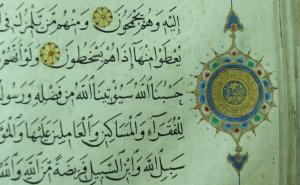 إِلَيْهِ وَهُمْ يَجْمَحُونَ وَمِنْهُمْ مَنْ يَلْمِزُكَ فِي
يُعْطَوْا مِنْهَا إِذَا هُمْ يَسْخَطُونَ وَلَوْ أَنَّهُمْ
حَسْبُنَا اللَّهُ سَيُؤْتِينَا اللَّهُ مِنْ فَضْلِهِ وَرَسُولُهُ
لِلْفُقَرَاءِ وَالْمَسَاكِينِ وَالْعَامِلِينَ عَلَيْهَا
سَبِيلِ اللَّهِ وَابْنِ السَّبِيلِ فَرِيضَةً مِنَ اللَّهِ وَاللَّهُ